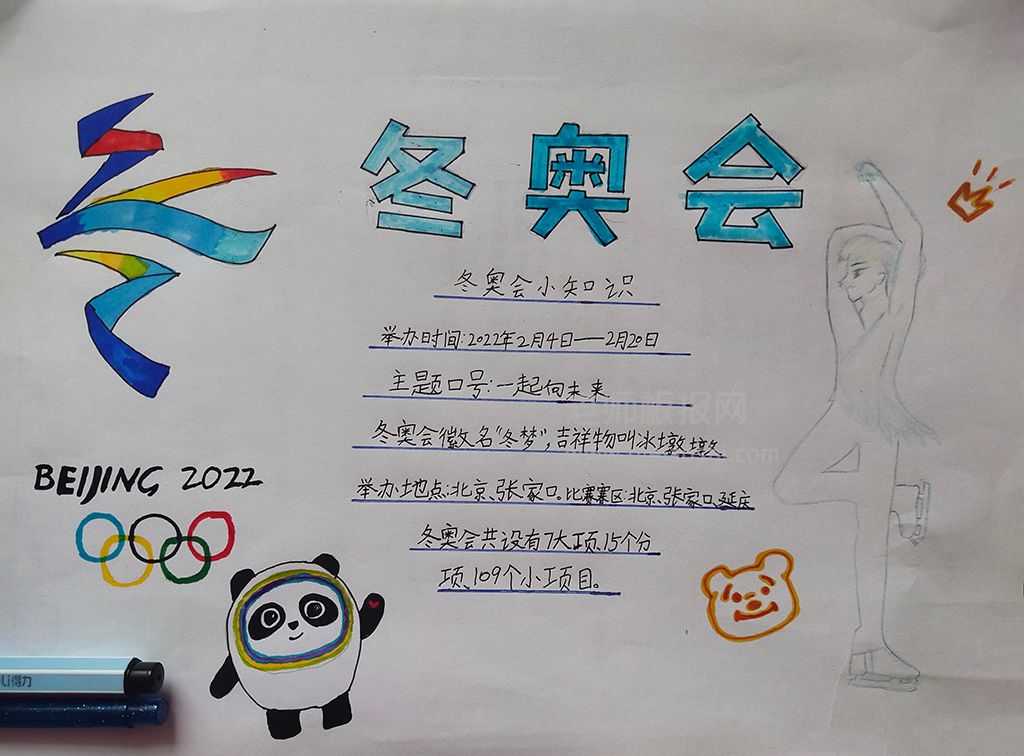 冬奥会
冬奥会小知识
举办时间:2022年2月4日——2月20日
主题口号:一起向未来
冬奥会徽名"冬梦",吉祥物叫冰墩墩
举办地点:北京、张家口。比赛赛区:北京、张家口、延庆
冬奥会共设有7大项、15个分
项、109个小项目。
BEIJING 2022
得力